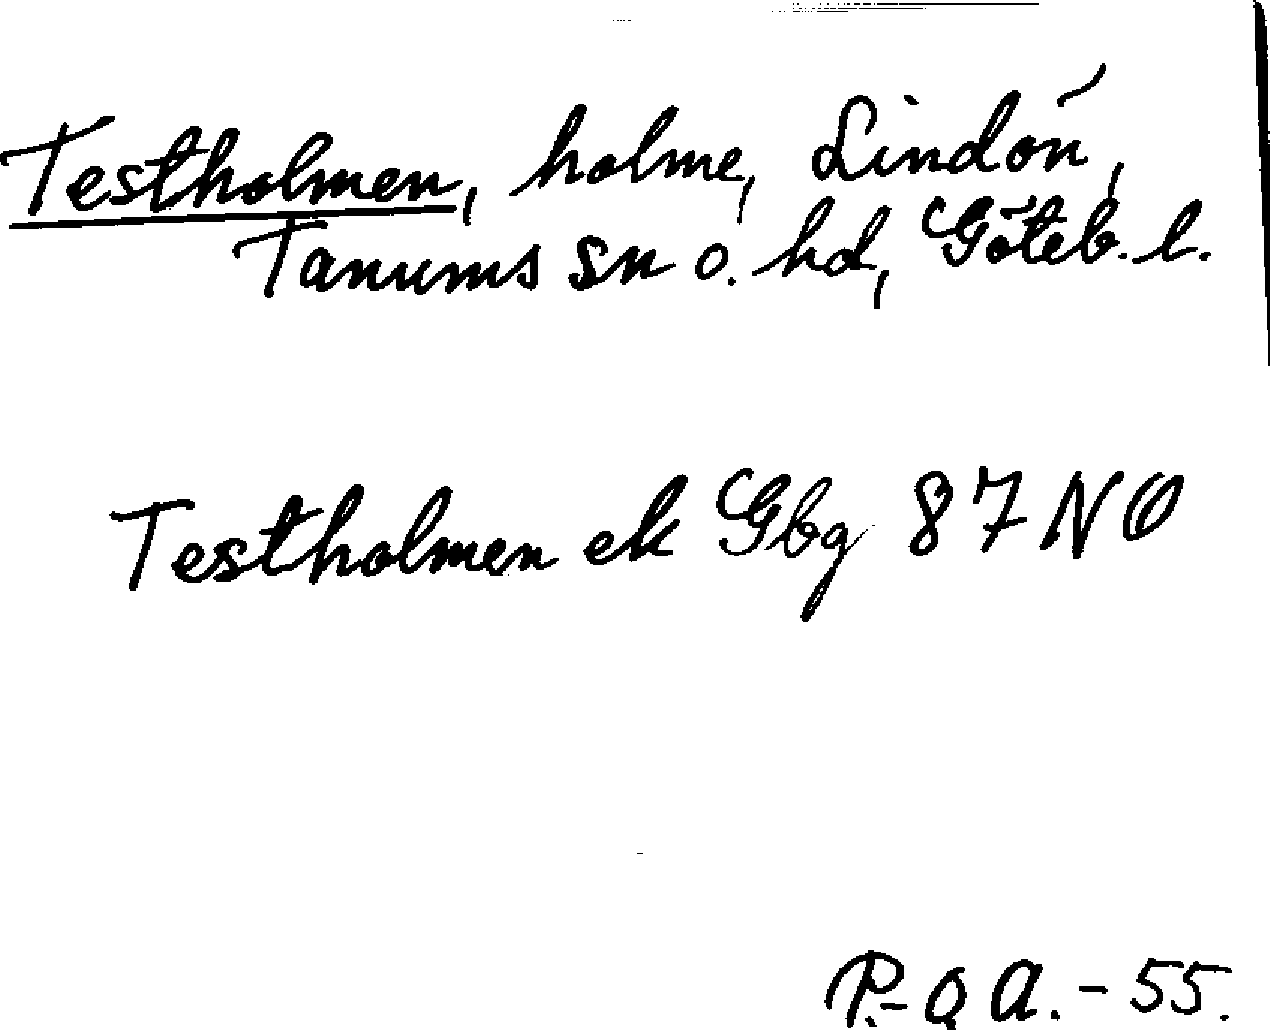 Testholmen, holme, Lindön,
Tanums sn o. hd, Göteb. l.
Testholmen ek Gbg 87 NO
P.-Q A. - 55.